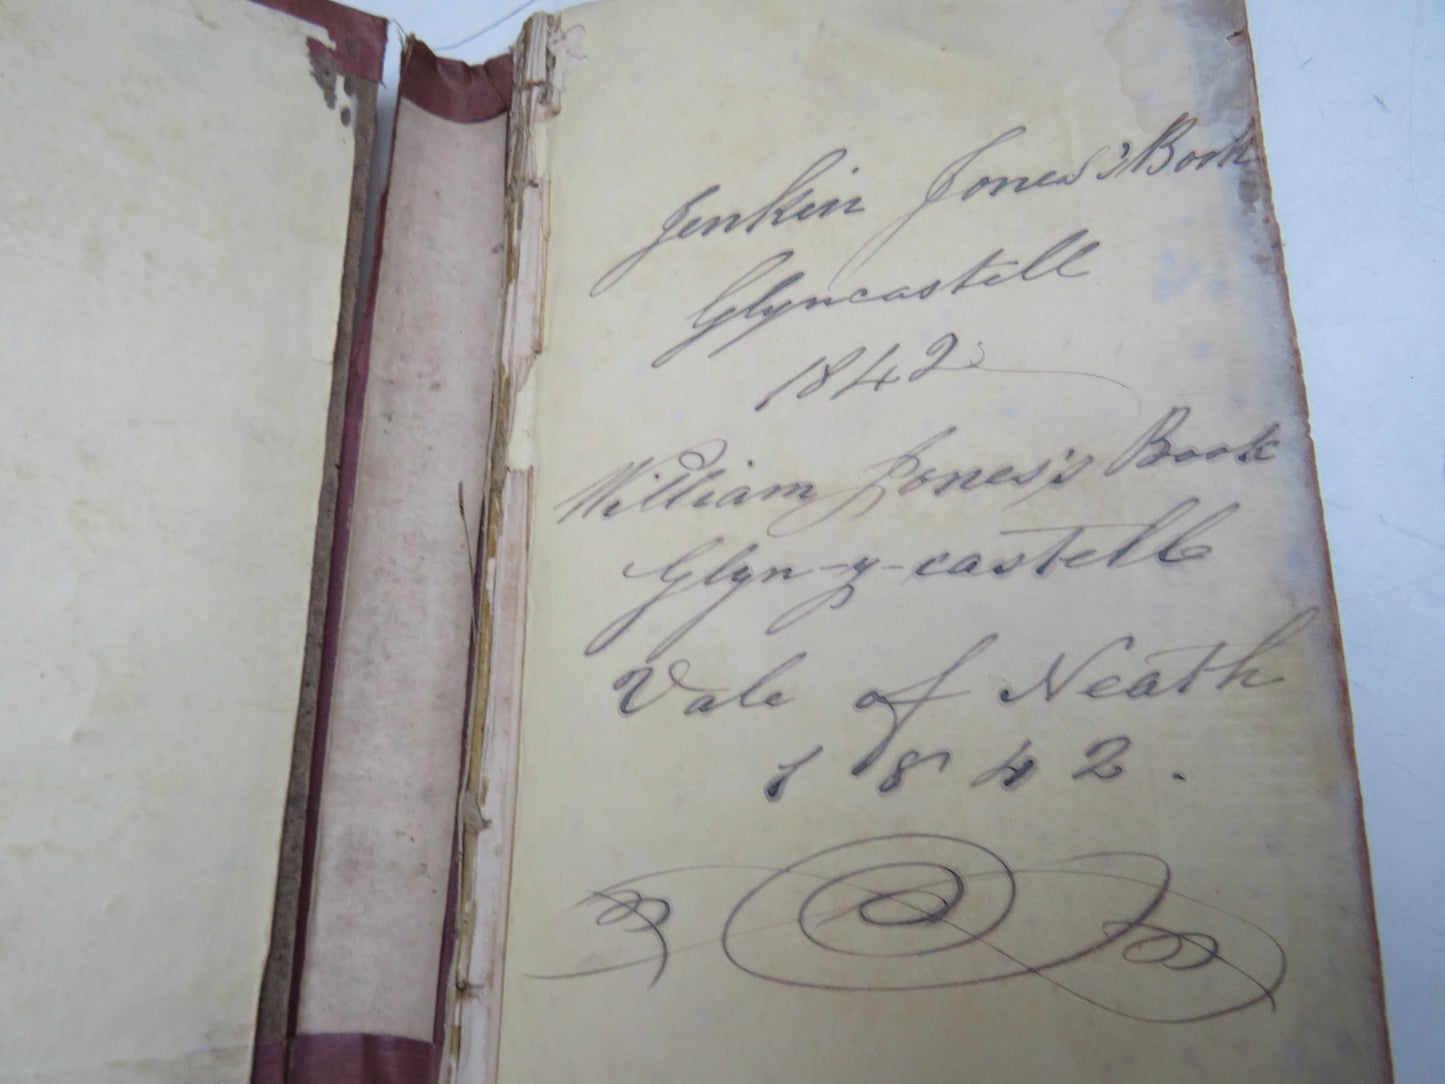 Jenkin Jones's Book
Glyncastell
1842
William Jones's Book
Glyn-y-castell
Vale of Neath
1842.